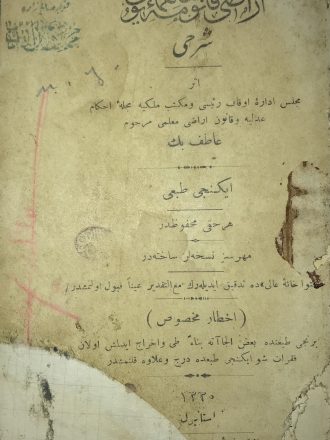 اراضی قانوننامهٔ همایونی
شرحی
اثر
مجلس ادارهٔ اوقاف رئیسی و مکتب ملکیه مجلهٔ احکام
عدلیه و قانون اراضی معلمی مرحوم
عاطف بك
ایكنجی طبعی
هر حقی محفوظدر
مهرسز نسخه‌لر ساخته‌در
خانهٔ عالی‌ده تدقیق ایدیله‌رك مع‌التقدیر عیناً قبول اولنمشدر
(اخطار مخصوص)
برنجی طبعنده بعض الجاآته بناءً طی و اخراج ایدلمش اولان
فقرات شو ایكنجی طبعنده درج و علاوه قلنمشدر
۱۳۳۰
استانبول